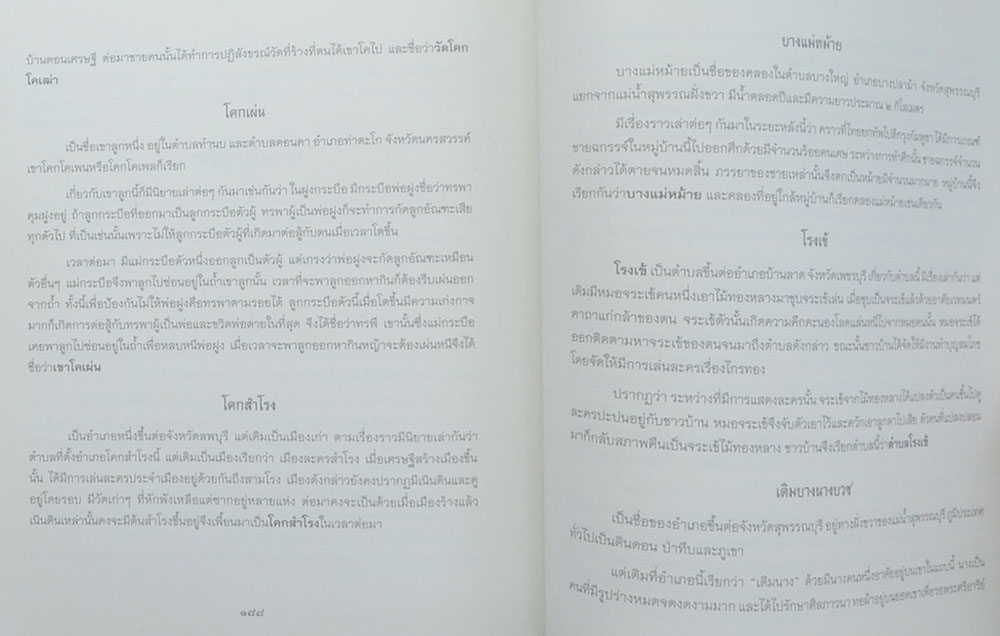 บ้านดอนเศรษฐี ต่อมาชายคนนั้นได้ทำการปฏิสังขรณ์วัดที่ร้างที่ตนได้เขาโคไป และชื่อว่าวัดโคก
โคเฒ่า
โคกเผ่น
เป็นชื่อเขาลูกหนึ่ง อยู่ในตำบลทำนบ และตำบลดอนคา อำเภอท่าตะโก จังหวัดนครสวรรค์
เขาโคกโคเพนหรือโคกโคเพลก็เรียก
เกี่ยวกับเขาลูกนี้ก็มีนิยายเล่าต่อๆ กันมาเช่นกันว่า ในฝูงกระบือ มีกระบือพ่อฝูงชื่อว่าทรพา
คุมฝูงอยู่ ถ้าลูกกระบือที่ออกมาเป็นลูกกระบือตัวผู้ ทรพาผู้เป็นพ่อฝูงก็จะทำการกัดลูกอัณฑะเสีย
ทุกตัวไป ที่เป็นเช่นนั้นเพราะไม่ให้ลูกกระบือตัวผู้ที่เกิดมาต่อสู้กับตนเมื่อเวลาโตขึ้น
เวลาต่อมา มีแม่กระบือตัวหนึ่งออกลูกเป็นตัวผู้ แต่เกรงว่าพ่อฝูงจะกัดลูกอัณฑะเหมือน
ตัวอื่นๆ แม่กระบือจึงพาลูกไปซ่อนอยู่ในถ้ำเขาลูกนั้น เวลาที่จะพาลูกออกหากินก็ต้องรีบเผ่นออก
จากถ้ำ ทั้งนี้เพื่อป้องกันไม่ให้พ่อฝูงคือทรพาตามรอยได้ ลูกกระบือตัวนี้เมื่อโตขึ้นมีความเก่งกาจ
มากก็เกิดการต่อสู้กับทรพาผู้เป็นพ่อและขวิดพ่อตายในที่สุด จึงได้ชื่อว่าทรพี เขานั้นซึ่งแม่กระบือ
เคยพาลูกไปซ่อนอยู่ในถ้ำเพื่อหลบหนีพ่อฝูง เมื่อเวลาจะพาลูกออกหากินหญ้าจะต้องเผ่นหนีจึงได้
ชื่อว่าเขาโคเผ่น
โคกสำโรง
เป็นอำเภอหนึ่งขึ้นต่อจังหวัดลพบุรี แต่เดิมเป็นเมืองเก่า ตามเรื่องราวมีนิยายเล่ากันว่า
ตำบลที่ตั้งอำเภอโคกสำโรงนี้ แต่เดิมเป็นเมืองเรียกว่า เมืองละครสำโรง เมื่อเศรษฐีสร้างเมืองขึ้น
นั้น ได้มีการเล่นละครประจำเมืองอยู่ด้วยกันถึงสามโรง เมืองดังกล่าวยังคงปรากฏมีเนินดินและคู
อยู่โดยรอบ มีวัดเก่าๆ ที่หักพังเหลือแต่ซากอยู่หลายแห่ง ต่อมาคงจะเป็นด้วยเมื่อเมืองร้างแล้ว
เนินดินเหล่านั้นคงจะมีต้นสำโรงขึ้นอยู่จึงเพี้ยนมาเป็นโคกสำโรงในเวลาต่อมา
๑๘๘
บางแม่หม้าย
บางแม่หม้ายเป็นชื่อของคลองในตำบลบางใหญ่ อำเภอบางปลาม้า จังหวัดสุพรรณบุรี
แยกจากแม่น้ำสุพรรณฝั่งขวา มีน้ำตลอดปีและมีความยาวประมาณ ๒ กิโลเมตร
มีเรื่องราวเล่าต่อๆ กันมาในระยะหลังนี้ว่า คราวที่ไทยยกทัพไปตีกรุงกัมพูชา ได้มีการเกณฑ์
ชายฉกรรจ์ในหมู่บ้านนี้ไปออกศึกด้วยมีจำนวนร้อยคนเศษ ระหว่างการทำศึกนั้น ชายฉกรรจ์จำนวน
ดังกล่าวได้ตายจนหมดสิ้น ภรรยาของชายเหล่านั้นจึงตกเป็นหม้ายมีจำนวนมากมาย หมู่บ้านนี้จึง
เรียกกันว่าบางแม่หม้าย และคลองที่อยู่ใกล้หมู่บ้านก็เรียกคลองแม่หม้ายเช่นเดียวกัน
โรงเข้
โรงเข้ เป็นตำบลขึ้นต่ออำเภอบ้านลาด จังหวัดเพชรบุรี เกี่ยวกับตำบลนี้ มีเรื่องเล่ากันว่า แต่
เดิมมีหมอจระเข้คนหนึ่งเอาไม้ทองหลางมาชุบจระเข้เล่น เมื่อชุบเป็นจระเข้แล้วด้วยอาศัยเวทมนตร์
คาถาแก่กล้าของตน จระเข้ตัวนั้นเกิดความคึกคะนองโลดแล่นหนีไปจากหมอคนนั้น หมอจระเข้ได้
ออกติดตามหาจระเข้ของตนจนมาถึงตำบลดังกล่าว ขณะนั้นชาวบ้านได้จัดให้มีงานทำบุญสมโภช
โดยจัดให้มีการเล่นละครเรื่องไกรทอง
ปรากฏว่า ระหว่างที่มีการแสดงละครนั้น จระเข้จากไม้ทองหลางได้แปลงตัวเป็นคนขึ้นไปดู
ละครปะปนอยู่กับชาวบ้าน หมอจระเข้จึงจับตัวเอาไว้และควักเอาลูกตาไปเสีย ตัวคนที่แปลงปลอม
มาก็กลับสภาพคืนเป็นจระเข้ไม้ทองหลาง ชาวบ้านจึงเรียกตำบลนี้ว่าตำบลโรงเข้
เดิมบางนางบวช
เป็นชื่อของอำเภอขึ้นต่อจังหวัดสุพรรณบุรี อยู่ทางฝั่งขวาของแม่น้ำสุพรรณบุรี ภูมิประเทศ
ทั่วไปเป็นดินดอน ป่าทึบและภูเขา
แต่เดิมที่อำเภอนี้เรียกว่า "เดิมนาง" ด้วยมีนางคนหนึ่งอาศัยอยู่บนเขาในแถบนี้ นางเป็น
คนที่มีรูปร่างหมดจดงดงามมาก และได้ไปรักษาศีลภาวนา ทอผ้าอยู่บนยอดเขาเพื่อรอพระศรีอาริย์